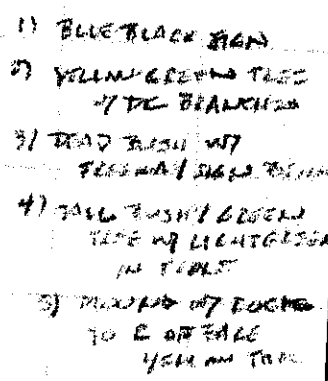 1) BLUE BLACK SIGN
2) YELLOW GREEN TREE
W/ DC BRANCHES
3) DEAD BUSH W/
FREEWAY SIGN BEHIND
4) TALL BUSH / GREEN
TREE W/ LIGHT GREEN
IN FRONT
5) MOUND W/ ROCKS
TO R OF
YELLOW